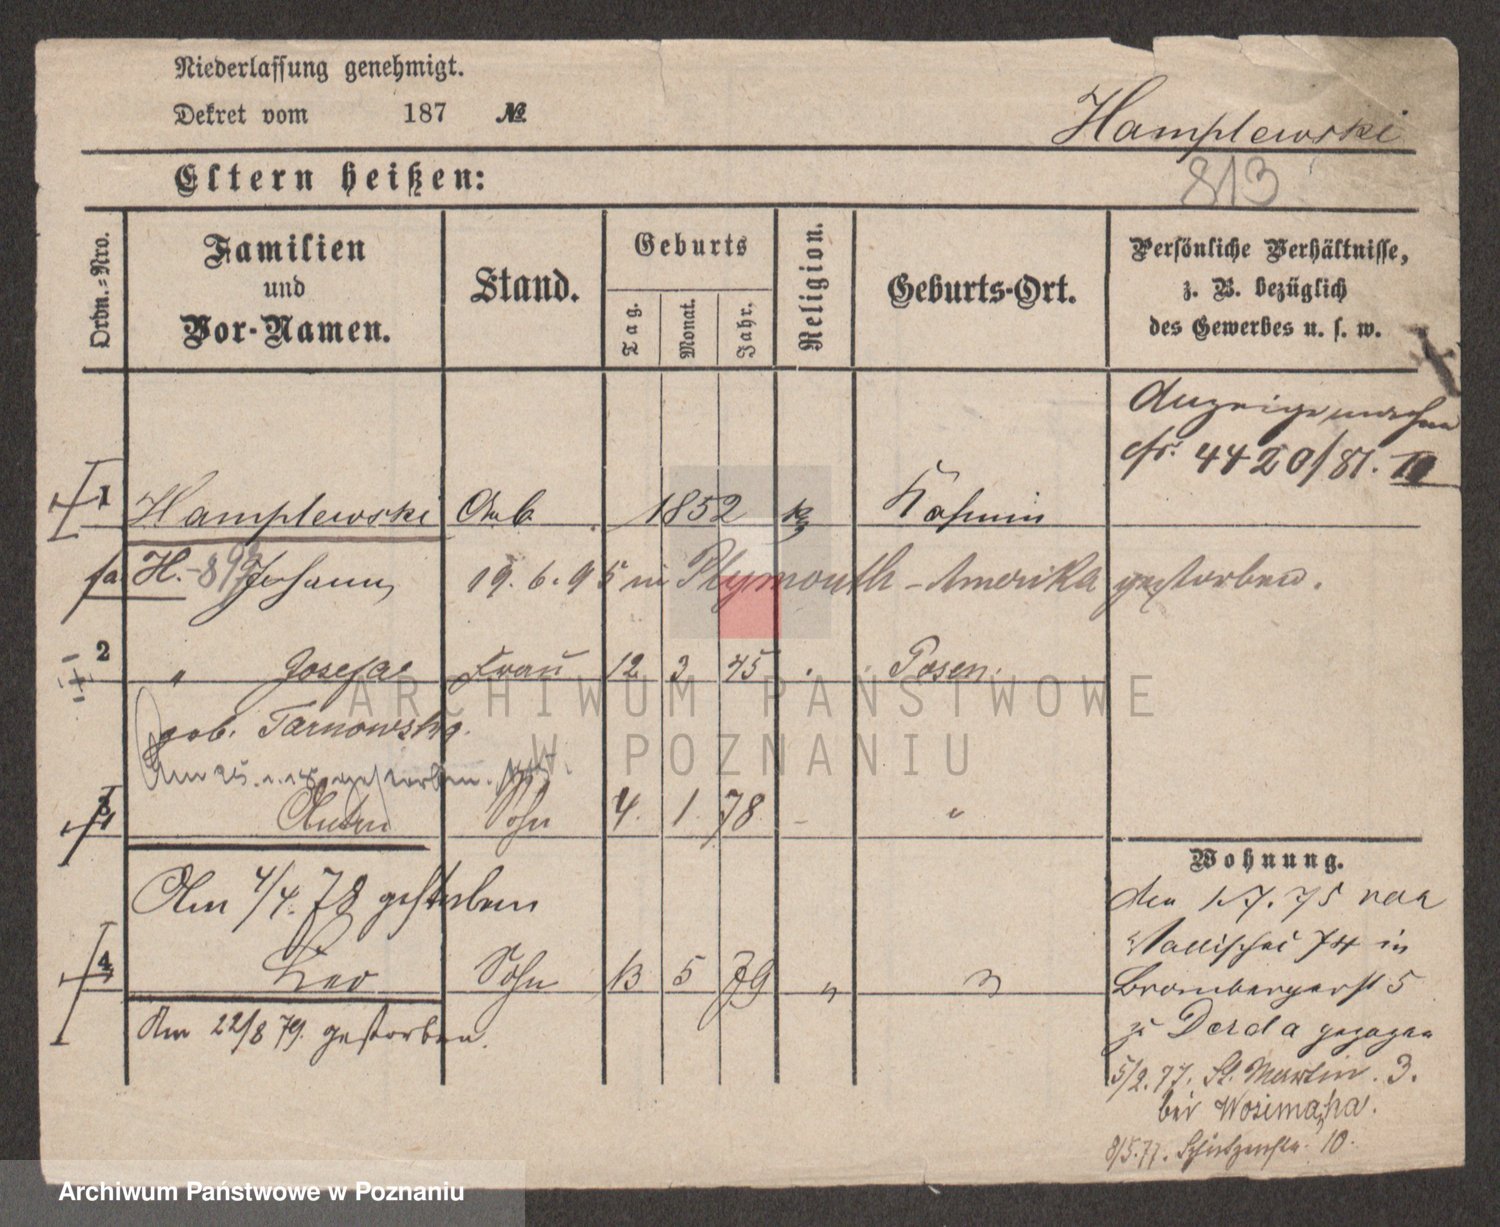 Niederlassung genehmigt.
Dekret vom 187 №
Hamplewski
813
Eltern heißen:
Ordn.-Nro.
Familien
und
Vor-Namen.
Stand.
Geburts
Tag.
Monat.
Jahr.
Religion.
Geburts-Ort.
Persönliche Verhältnisse,
z. B. bezüglich
des Gewerbes u. s. w.
4420/81.
1 Hamplewski Arb. 1852 k Kosmin
H. Johann 19. 6. 95 in Plymouth - Amerika gestorben.
2 " Josefa Frau 12 3 45 Posen.
geb. Tarnowska.
gestorben.
3 Anton Sohn 4. 1. 78 "
Am 4/4. 78 gestorben
4 Leo Sohn 13 5 79 " "
Am 22/8 79. gestorben.
Wohnung.
den 1.7.75 von
Wallischei 74 in
Brombergerst 5
zu Derda gezogen
5/2.77. St. Martin. 3.
bei
8/5.77. Schützenstr. 10.
ARCHIWUM PAŃSTWOWE
W POZNANIU
Archiwum Państwowe w Poznaniu